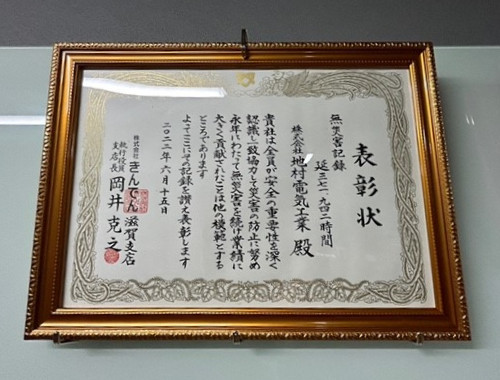 表彰状
無災害記録
延三七一、九四二時間
株式会社 地村電気工業 殿
貴社は全員が安全の重要性を深く
認識し一致協力して災害の防止に努め
永年にわたって無災害を続け業績に
大きく貢献されたことは他の模範とする
ところであります
よってここにその記録を讃え表彰します
二〇二二年 六月 十五日
株式会社 きんでん 滋賀支店
執行役員
支店長 岡井克之